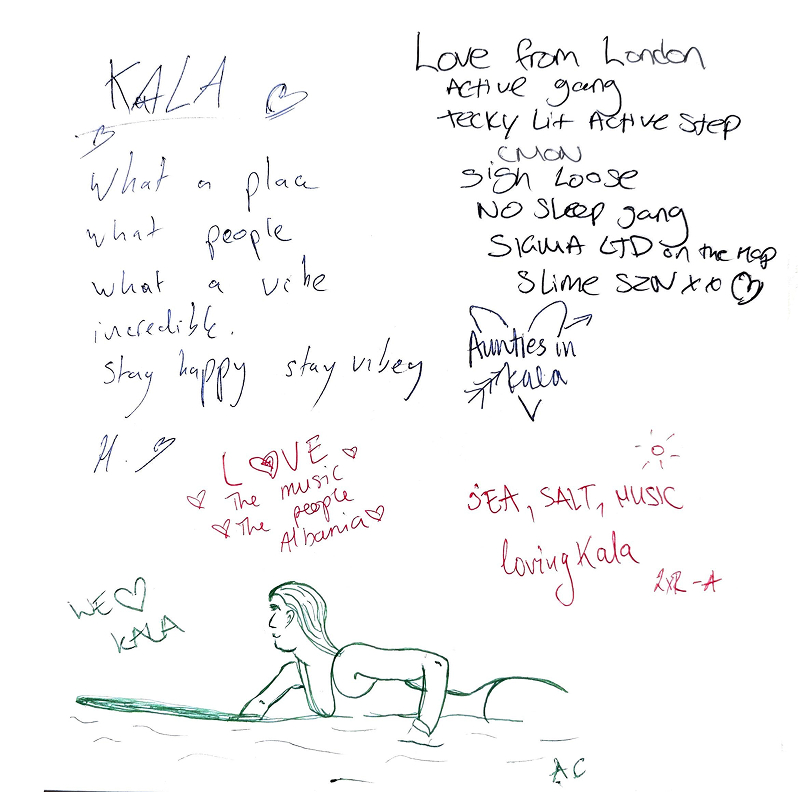 KALA
What a place
what people
what a vibe
incredible.
Stay happy stay vibey
H.
Love from London
Active gang
Tecky Lit Active Step
CMON
Sigh Loose
NO Sleep gang
SIGMA LTD on the Map
Slime SZN xxo
Aunties in
Kala
LOVE
The music
The people
Albania
SEA, SALT, MUSIC
loving Kala
2xR-A
WE
KALA
AC